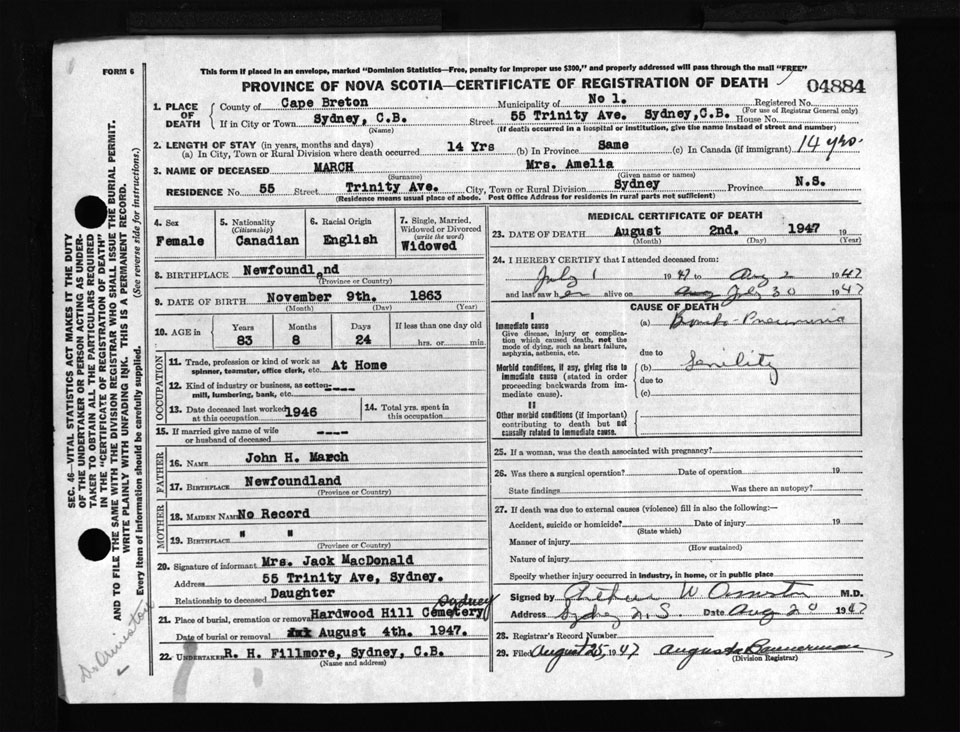 FORM 6
This form if placed in an envelope, marked "Dominion Statistics—Free, penalty for improper use $300," and properly addressed will pass through the mail "FREE"
PROVINCE OF NOVA SCOTIA—CERTIFICATE OF REGISTRATION OF DEATH
04884
1. PLACE OF DEATH
County of Cape Breton Municipality of No 1. Registered No.
(For use of Registrar General only)
If in City or Town Sydney, C.B. Street 55 Trinity Ave. Sydney, C.B. House No.
(Name) (If death occurred in a hospital or institution, give the name instead of street and number)
2. LENGTH OF STAY (in years, months and days)
(a) In City, Town or Rural Division where death occurred 14 Yrs (b) In Province Same (c) In Canada (if immigrant) 14 yrs.
3. NAME OF DECEASED MARCH Mrs. Amelia
(Surname) (Given name or names)
RESIDENCE No 55 Street Trinity Ave. City, Town or Rural Division Sydney Province N.S.
(Residence means usual place of abode. Post Office Address for residents in rural parts not sufficient)
4. Sex
Female
5. Nationality
(Citizenship)
Canadian
6. Racial Origin
English
7. Single, Married, Widowed or Divorced
(write the word)
Widowed
8. BIRTHPLACE Newfoundland
(Province or Country)
9. DATE OF BIRTH November 9th. 1863
(Month) (Day) (Year)
10. AGE in
Years Months Days If less than one day old
83 8 24 hrs. or min.
OCCUPATION
11. Trade, profession or kind of work as spinner, teamster, office clerk, etc. At Home
12. Kind of industry or business, as cotton-mill, lumbering, bank, etc. ----
13. Date deceased last worked at this occupation 1946
14. Total yrs. spent in this occupation
15. If married give name of wife or husband of deceased ----
FATHER
16. NAME John H. March
17. BIRTHPLACE Newfoundland
(Province or Country)
MOTHER
18. MAIDEN NAME No Record
19. BIRTHPLACE " "
(Province or Country)
20. Signature of informant Mrs. Jack MacDonald
Address 55 Trinity Ave, Sydney.
Relationship to deceased Daughter
21. Place of burial, cremation or removal Hardwood Hill Cemetery Sydney
Date of burial or removal August 4th. 1947.
22. UNDERTAKER R. H. Fillmore, Sydney, C.B.
(Name and address)
MEDICAL CERTIFICATE OF DEATH
23. DATE OF DEATH August 2nd. 1947 19
(Month) (Day) (Year)
24. I HEREBY CERTIFY that I attended deceased from:
July 1 1947 to Aug 2 1947
and last saw her alive on Aug July 30 1947
CAUSE OF DEATH
I
Immediate cause
Give disease, injury or complication which caused death, not the mode of dying, such as heart failure, asphyxia, asthenia, etc.
(a) Broncho-Pneumonia
due to
Morbid conditions, if any, giving rise to immediate cause (stated in order proceeding backwards from immediate cause).
(b) Senility
due to
(c)
II
Other morbid conditions (if important) contributing to death but not causally related to immediate cause.
25. If a woman, was the death associated with pregnancy?
26. Was there a surgical operation? Date of operation 19
State findings Was there an autopsy?
27. If death was due to external causes (violence) fill in also the following:—
Accident, suicide or homicide? Date of injury 19
(State which)
Manner of injury
(How sustained)
Nature of injury
Specify whether injury occurred in industry, in home, or in public place
Signed by Arthur W Ormiston M.D.
Address Sydney N.S. Date Aug 20 1947
28. Registrar's Record Number
29. Filed August 25, 1947 Augusta Bannerman
(Division Registrar)
SEC. 46—VITAL STATISTICS ACT MAKES IT THE DUTY
OF THE UNDERTAKER OR PERSON ACTING AS UNDER-
TAKER TO OBTAIN ALL THE PARTICULARS REQUIRED
IN THE "CERTIFICATE OF REGISTRATION OF DEATH"
AND TO FILE THE SAME WITH THE DIVISION REGISTRAR WHO SHALL ISSUE THE BURIAL PERMIT.
WRITE PLAINLY WITH UNFADING INK. THIS IS A PERMANENT RECORD.
Every item of information should be carefully supplied. (See reverse side for instructions.)
Dr Ormiston